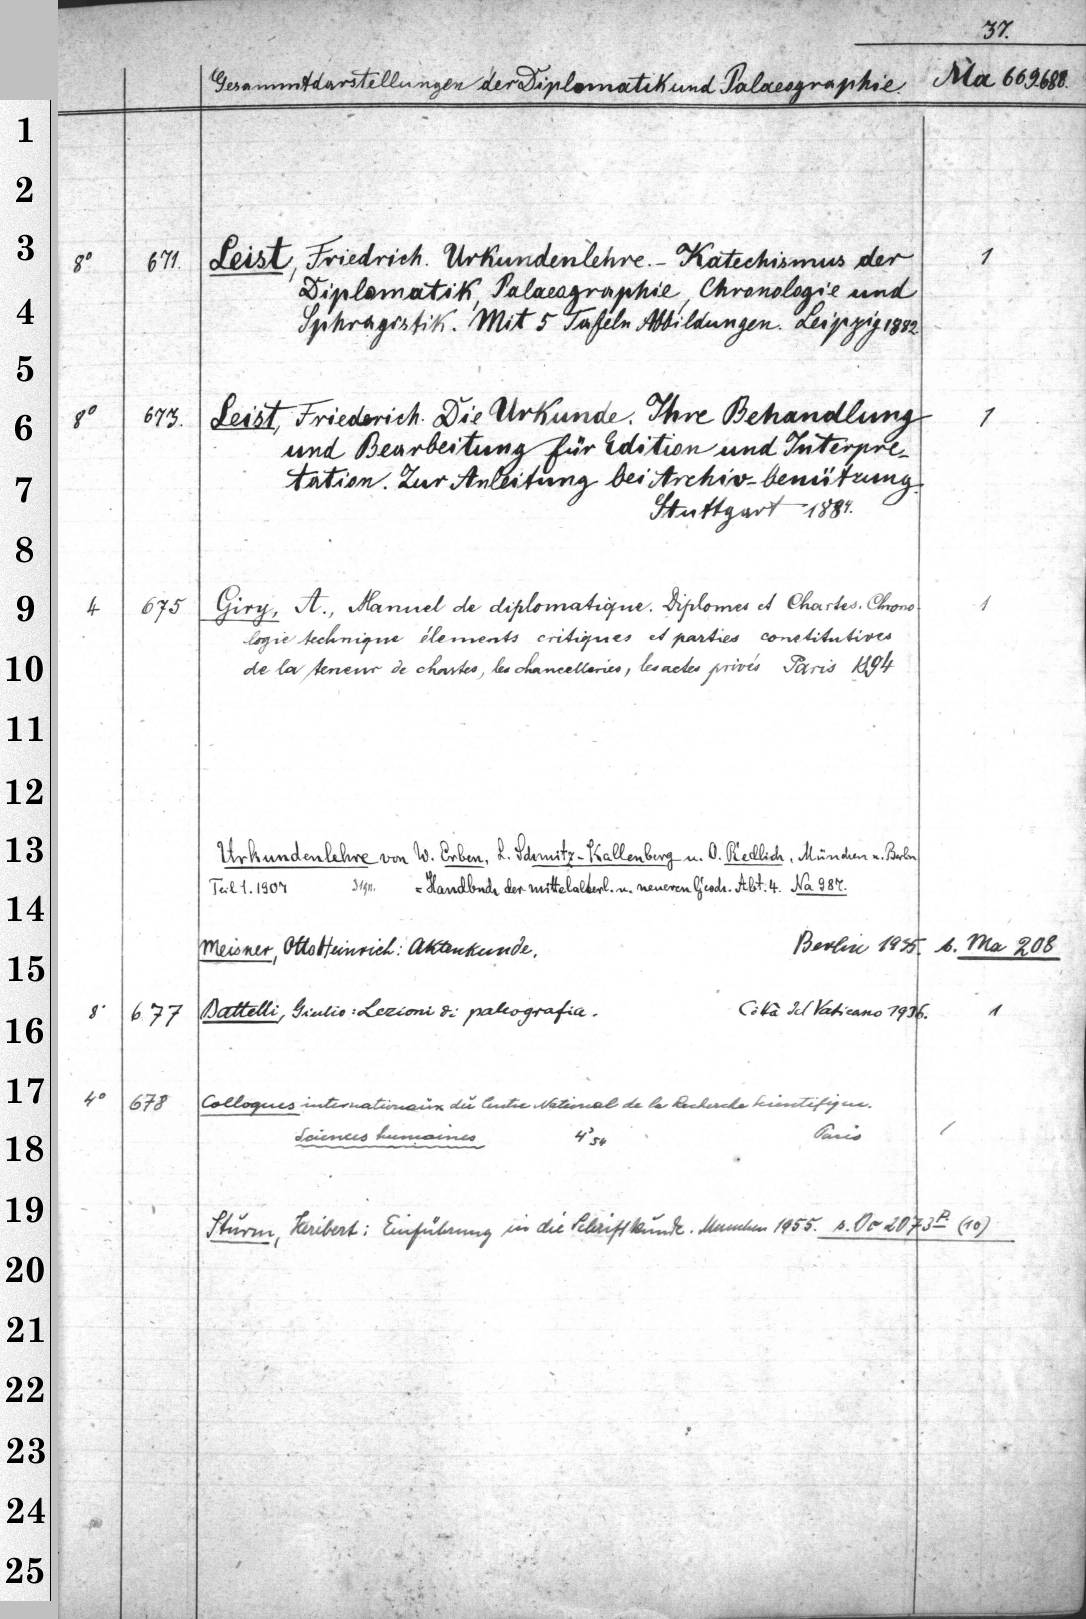 37.
Gesammtdarstellungen der Diplomatik und Palaeographie. Ma 669.688.
1
2
3
8° 671. Leist, Friedrich. Urkundenlehre. - Katechismus der 1
Diplomatik, Palaeographie, Chronologie und
4
Sphragistik. Mit 5 Tafeln Abbildungen. Leipzig 1882.
5
6
8° 673. Leist, Friederich. Die Urkunde. Ihre Behandlung 1
und Bearbeitung für Edition und Interpre-
7
tation. Zur Anleitung bei Archiv-benützung.
Stuttgart 1884.
8
9
4 675 Giry, A., Manuel de diplomatique. Diplomes et Chartes. Chrono- 1
logie technique élements critiques et parties constitutives
10
de la teneur de chartes, les chancelleries, les actes privés Paris 1894
11
12
13
Urkundenlehre von W. Erben, L. Schmitz-Kallenberg u. O. Redlich, München u. Berlin
Teil 1. 1907 Sign. = Handbuch der mittelalterl. u. neueren Gesch. Abt. 4. Na 987.
14
15
Meisner, Otto Heinrich: Aktenkunde. Berlin 1935. s. Ma 208
16
8° 677 Battelli, Giulio: Lezioni di paleografia. Città del Vaticano 1936. 1
17
4° 678 Colloques internationaux du Centre National de la Recherche Scientifique.
18
Sciences humaines 4°54 Paris 1
19
Sturm, Heribert: Einführung in die Schriftkunde. Muenchen 1955. s. Oo 2073P (10)
20
21
22
23
24
25